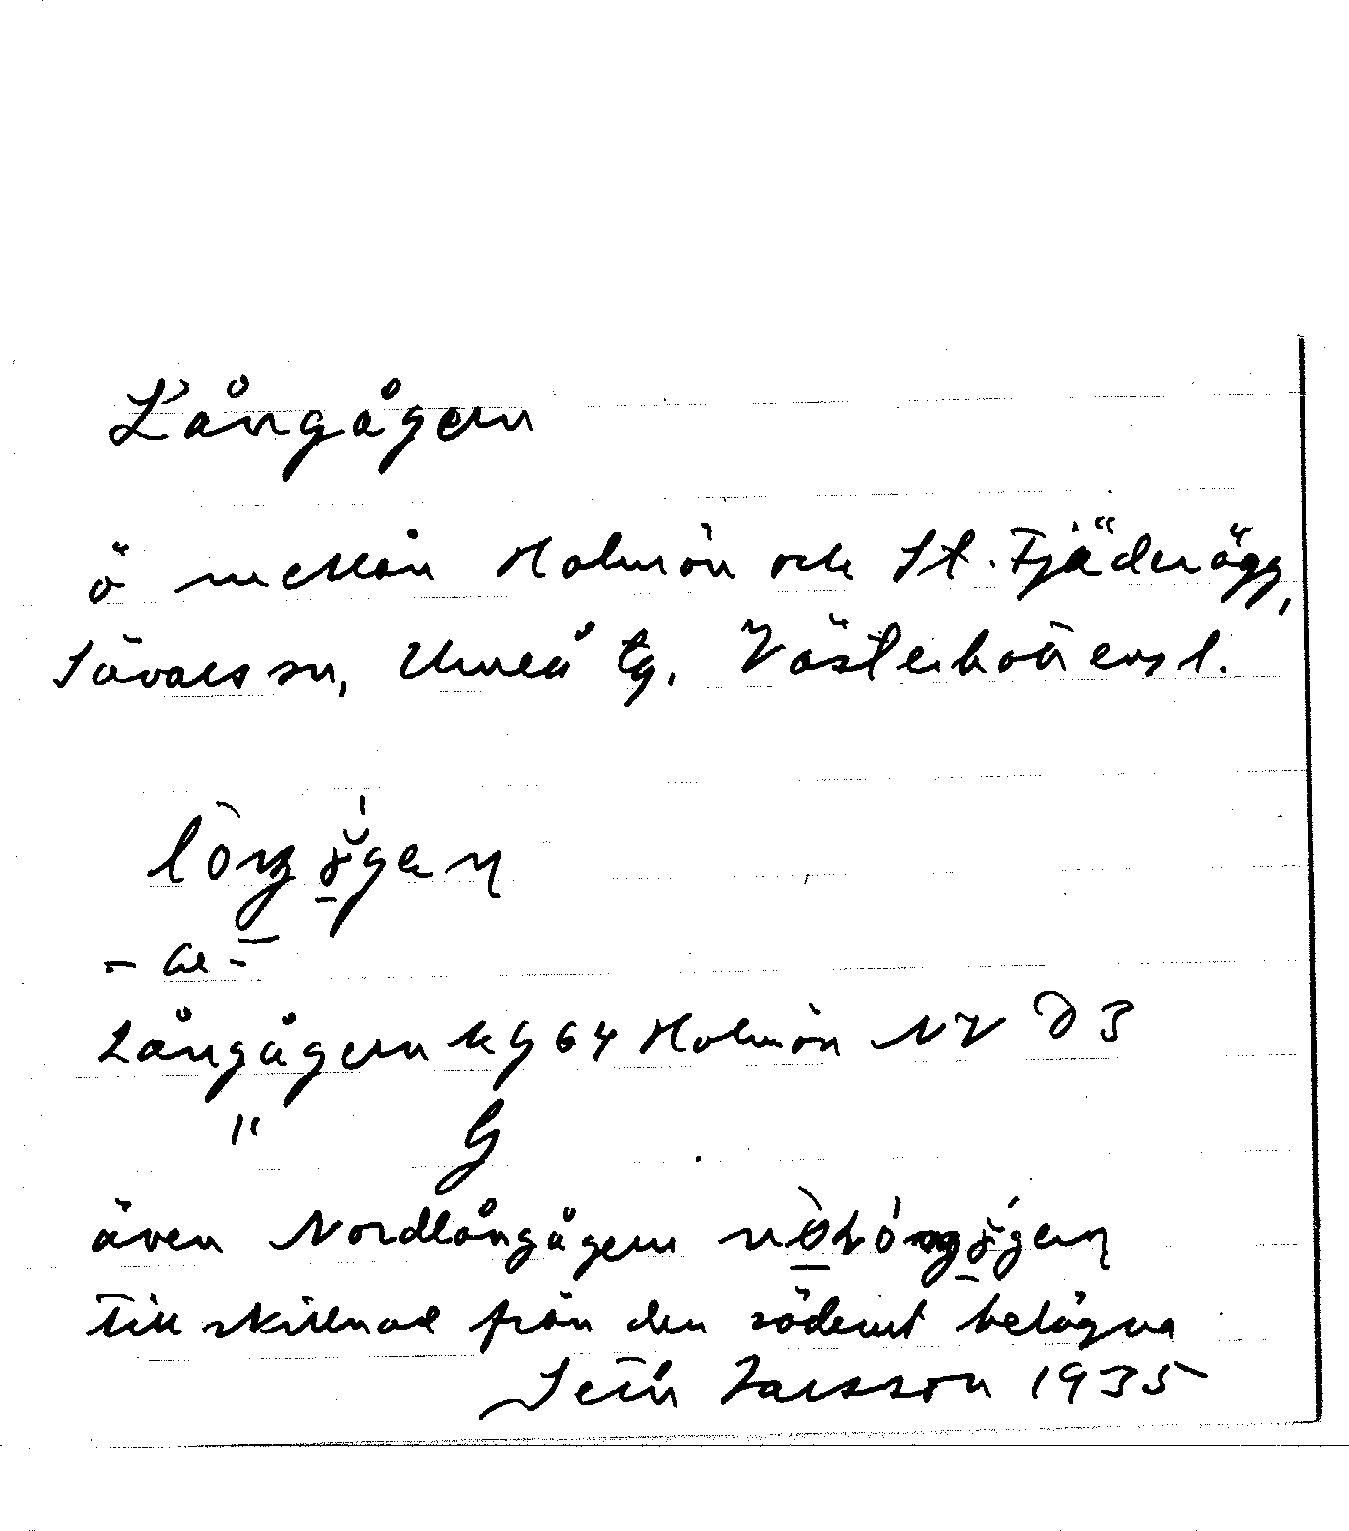 Långågern
ö mellan Holmön och St. Fjäderägg,
Sävars sn, Umeå tg, Västerbottens l.
- æ -
Långågern kg 64 Holmön NV D3
" G
även Nordlångågern
till skillnad från den söderut belägna
Larsson 1935